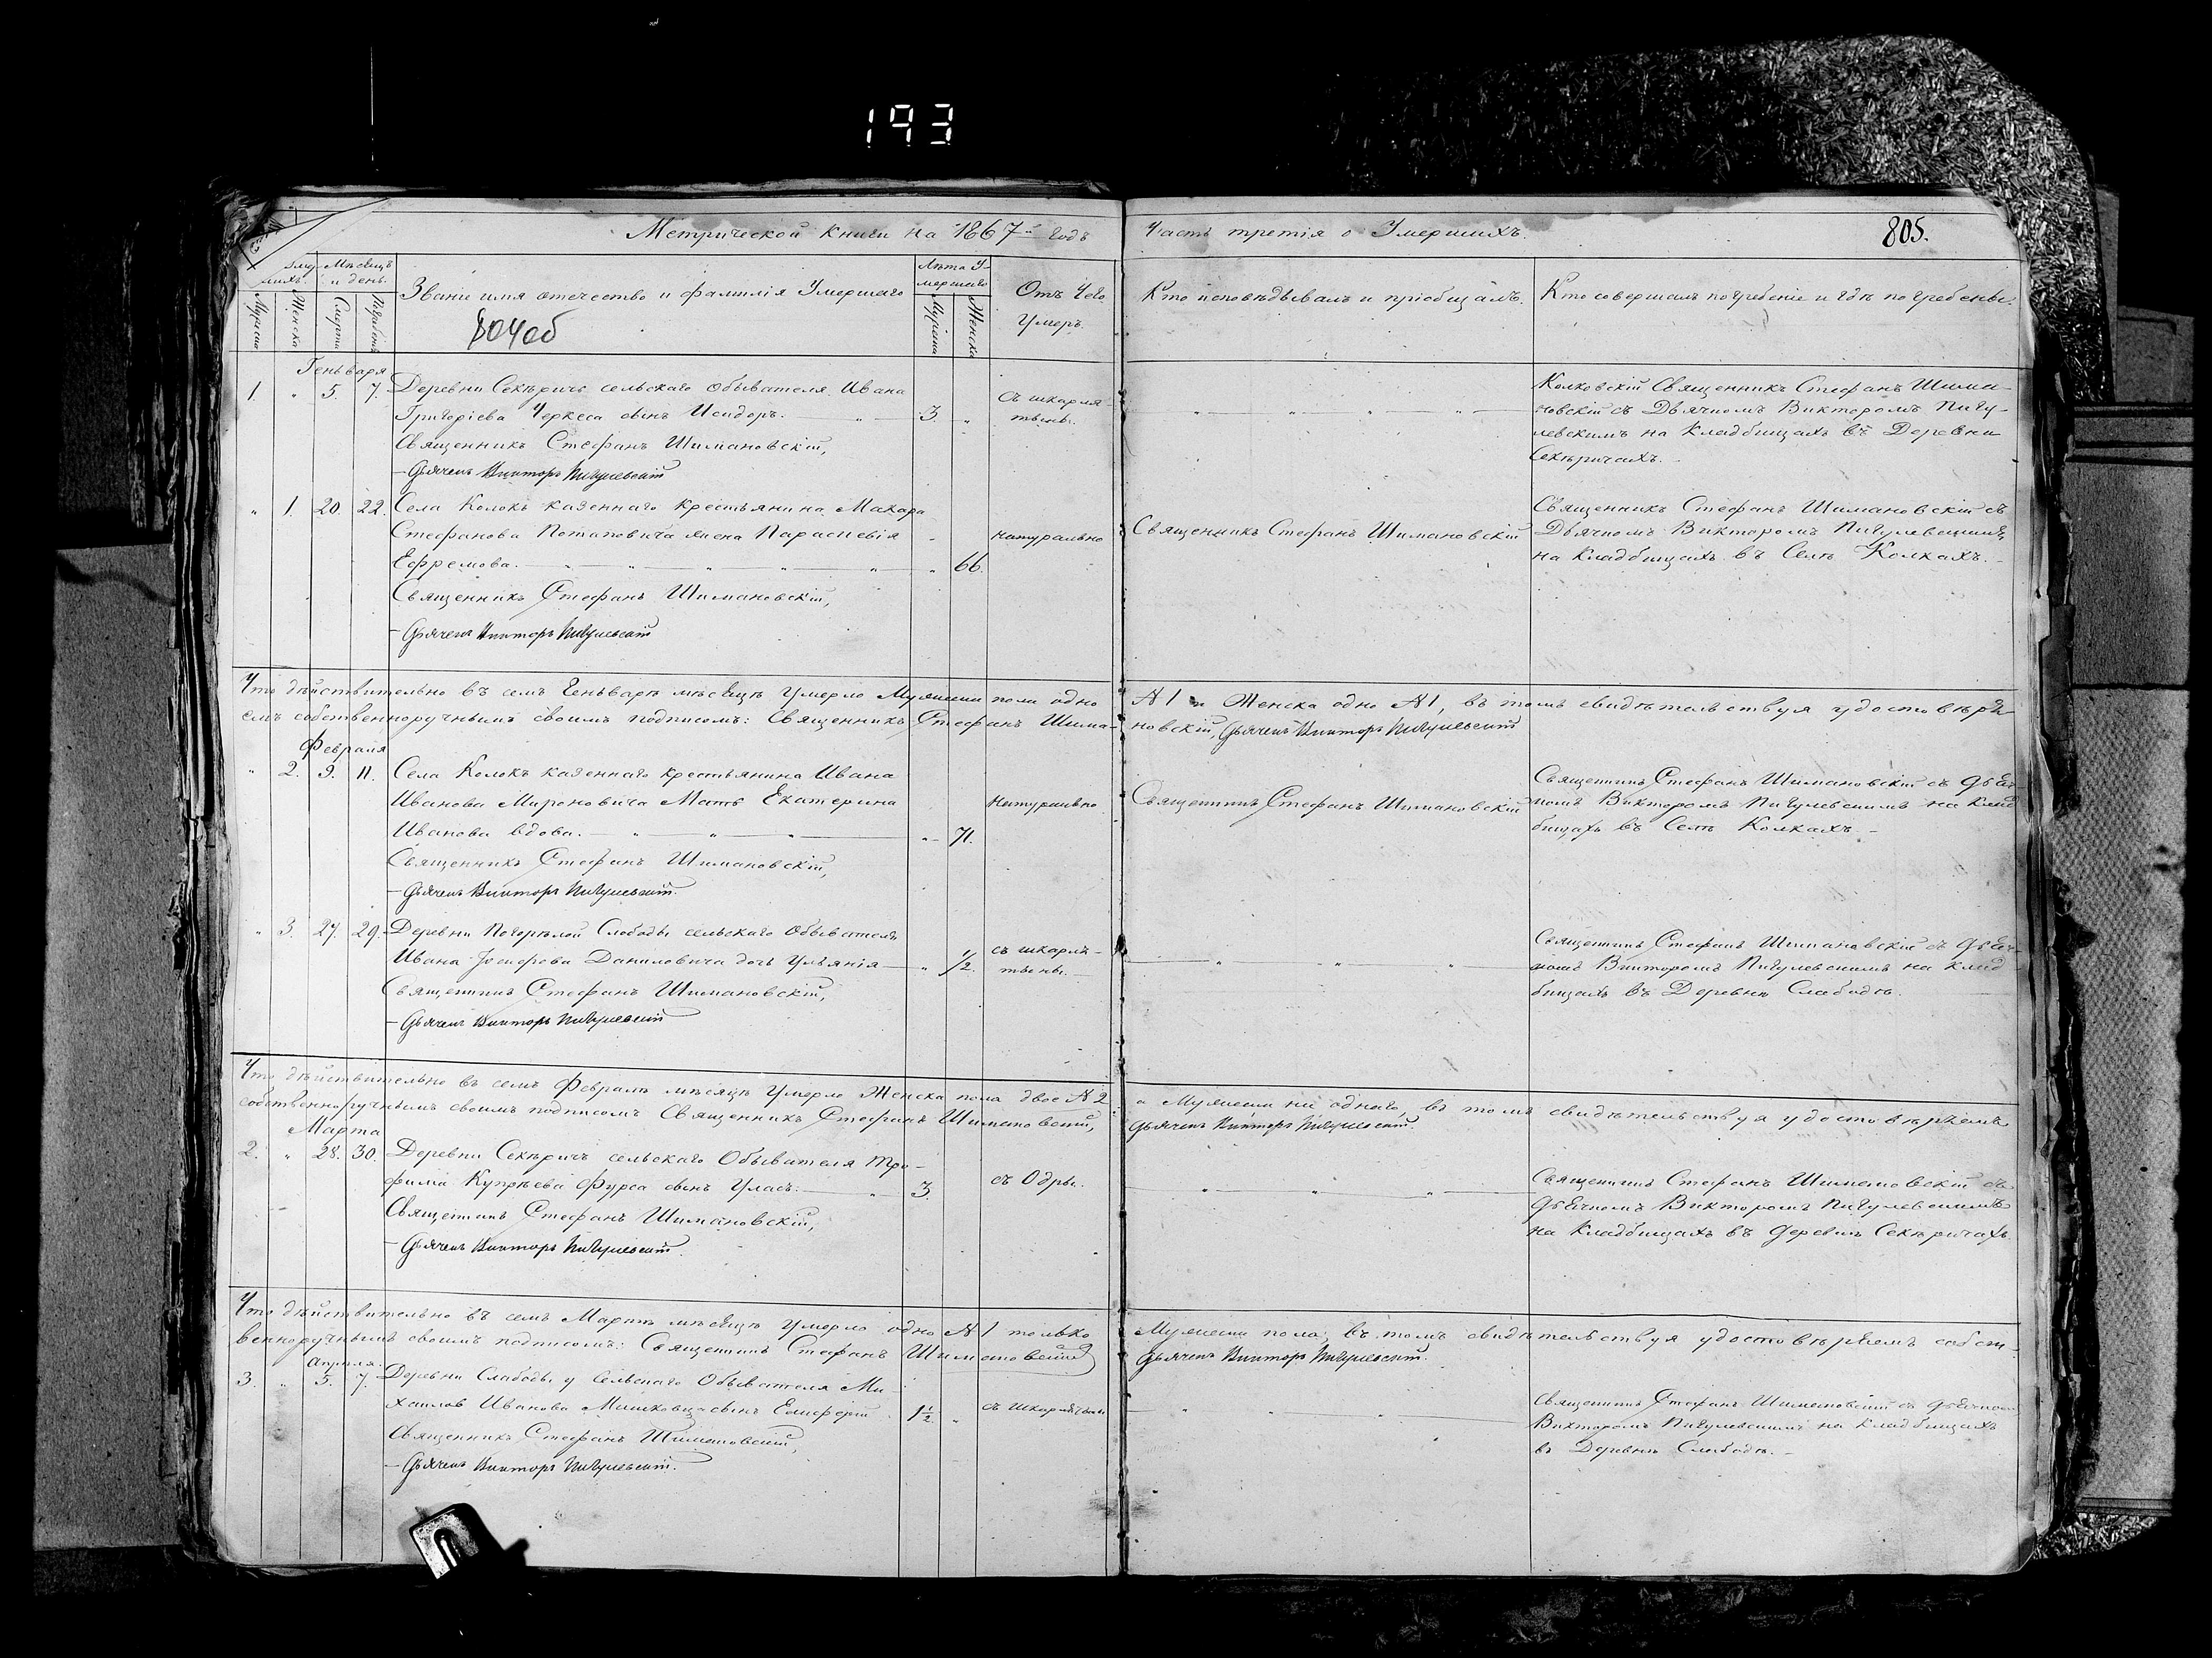 193
Метрической книги на 1867й годъ
Часть третія о Умершихъ.
805.
Мѣсяцъ и день.
Лѣта Умершаго
Мужска
Женска
Смерти
Погребен.
Званіе имя отечество и фамилія Умершаго
804об
Мужска
Женска
Отъ Чего Умеръ.
Кто исповѣдывалъ и пріобщалъ.
Кто совершалъ погребеніе и гдѣ погребены.
Геньваря
1. " 5. 7. Деревни Секѣричъ сельскаго обывателя Ивана
Григоріева Черкеса сынъ Исидоръ. 3. "
Съ шкарля-
тыны.
Священникъ Стефанъ Шимановскій,
Дьячекъ Викторъ Пигулевскій
Колковскій Священникъ Стефанъ Шима-
новскій съ Дьячкомъ Викторомъ Пигу-
левскимъ на кладбищахъ въ Деревни
Секѣричахъ.
" 1. 20. 22. Села Колокъ казеннаго крестьянина Макара
Стефанова Потаповича жена Параскевія
Ефремова. " 66.
натурально
Священникъ Стефанъ Шимановскій,
Дьячекъ Викторъ Пигулевскій
Священникъ Стефанъ Шимановскій
Священникъ Стефанъ Шимановскій съ
Дьячкомъ Викторомъ Пигулевскимъ
на кладбищахъ въ Селѣ Колкахъ.
Что дѣйствительно въ семъ Геньварѣ мѣсяцѣ умерло Мужески пола одно
N 1 и Женска одно N 1, въ томъ свидѣтельствуя удостовѣря-
емъ собственноручнымъ своимъ подписомъ: Священникъ Стефанъ Шима-
новскій, Дьячекъ Викторъ Пигулевскій
Февраля
" 2. 9. 11. Села Колокъ казеннаго крестьянина Ивана
Иванова Мироновича Мать Екатерина
Иванова вдова. " 71.
Натурально
Священникъ Стефанъ Шимановскій,
Дьячекъ Викторъ Пигулевскій.
Священникъ Стефанъ Шимановскій
Священникъ Стефанъ Шимановскій съ дьяч-
комъ Викторомъ Пигулевскимъ на клад-
бищахъ въ Селѣ Колкахъ.
" 3. 27. 29. Деревни Погорѣлой Слободы сельскаго Обывателя
Ивана Іосифова Даниловича дочь Ульянія " 1/2.
съ шкарля-
тыны.
Священникъ Стефанъ Шимановскій,
Дьячекъ Викторъ Пигулевскій
Священникъ Стефанъ Шимановскій съ дьяч-
комъ Викторомъ Пигулевскимъ на клад
бищахъ въ Деревни Слабодѣ.
Что дѣйствительно въ семъ Февралѣ мѣсяцѣ умерло Женска пола двое N 2
а Мужески ни одного, въ томъ свидѣтельствуя удостовѣряемъ
собственноручнымъ своимъ подписомъ Священникъ Стефанъ Шимановскій,
Дьячекъ Викторъ Пигулевскій.
Марта
2. " 28. 30. Деревни Секѣричъ сельскаго Обывателя Тро-
фима Купрѣева Фурса сынъ Уласъ. 3.
съ Одры.
Священникъ Стефанъ Шимановскій,
Дьячекъ Викторъ Пигулевскій.
Священникъ Стефанъ Шимановскій съ
дьячкомъ Викторомъ Пигулевскимъ
на кладбищахъ въ деревнѣ Секѣричахъ.
Что дѣйствительно въ семъ Мартѣ мѣсяцѣ умерло одно N 1 только
Мужески пола, въ томъ свидѣтельствуя удостовѣряемъ собст-
венноручнымъ своимъ подписомъ: Священникъ Стефанъ Шимановскій
Дьячекъ Викторъ Пигулевскій.
Апрѣля.
3. " 5. 7. Деревни Слабоды у Сельскаго Обывателя Ми-
хаилов Иванова сынъ 1 1/2 "
съ шкарлятыны
Священникъ Стефанъ Шимановскій,
Дьячекъ Викторъ Пигулевскій.
Священникъ Стефанъ Шимановскій съ дьячкомъ
Викторомъ Пигулевскимъ на кладбищахъ
въ Деревнѣ Слабодѣ.